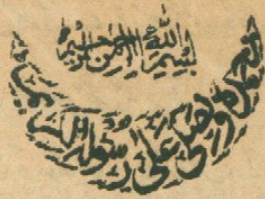 بسم الله الرحمن الرحيم
نحمده ونصلي على رسوله الكريم